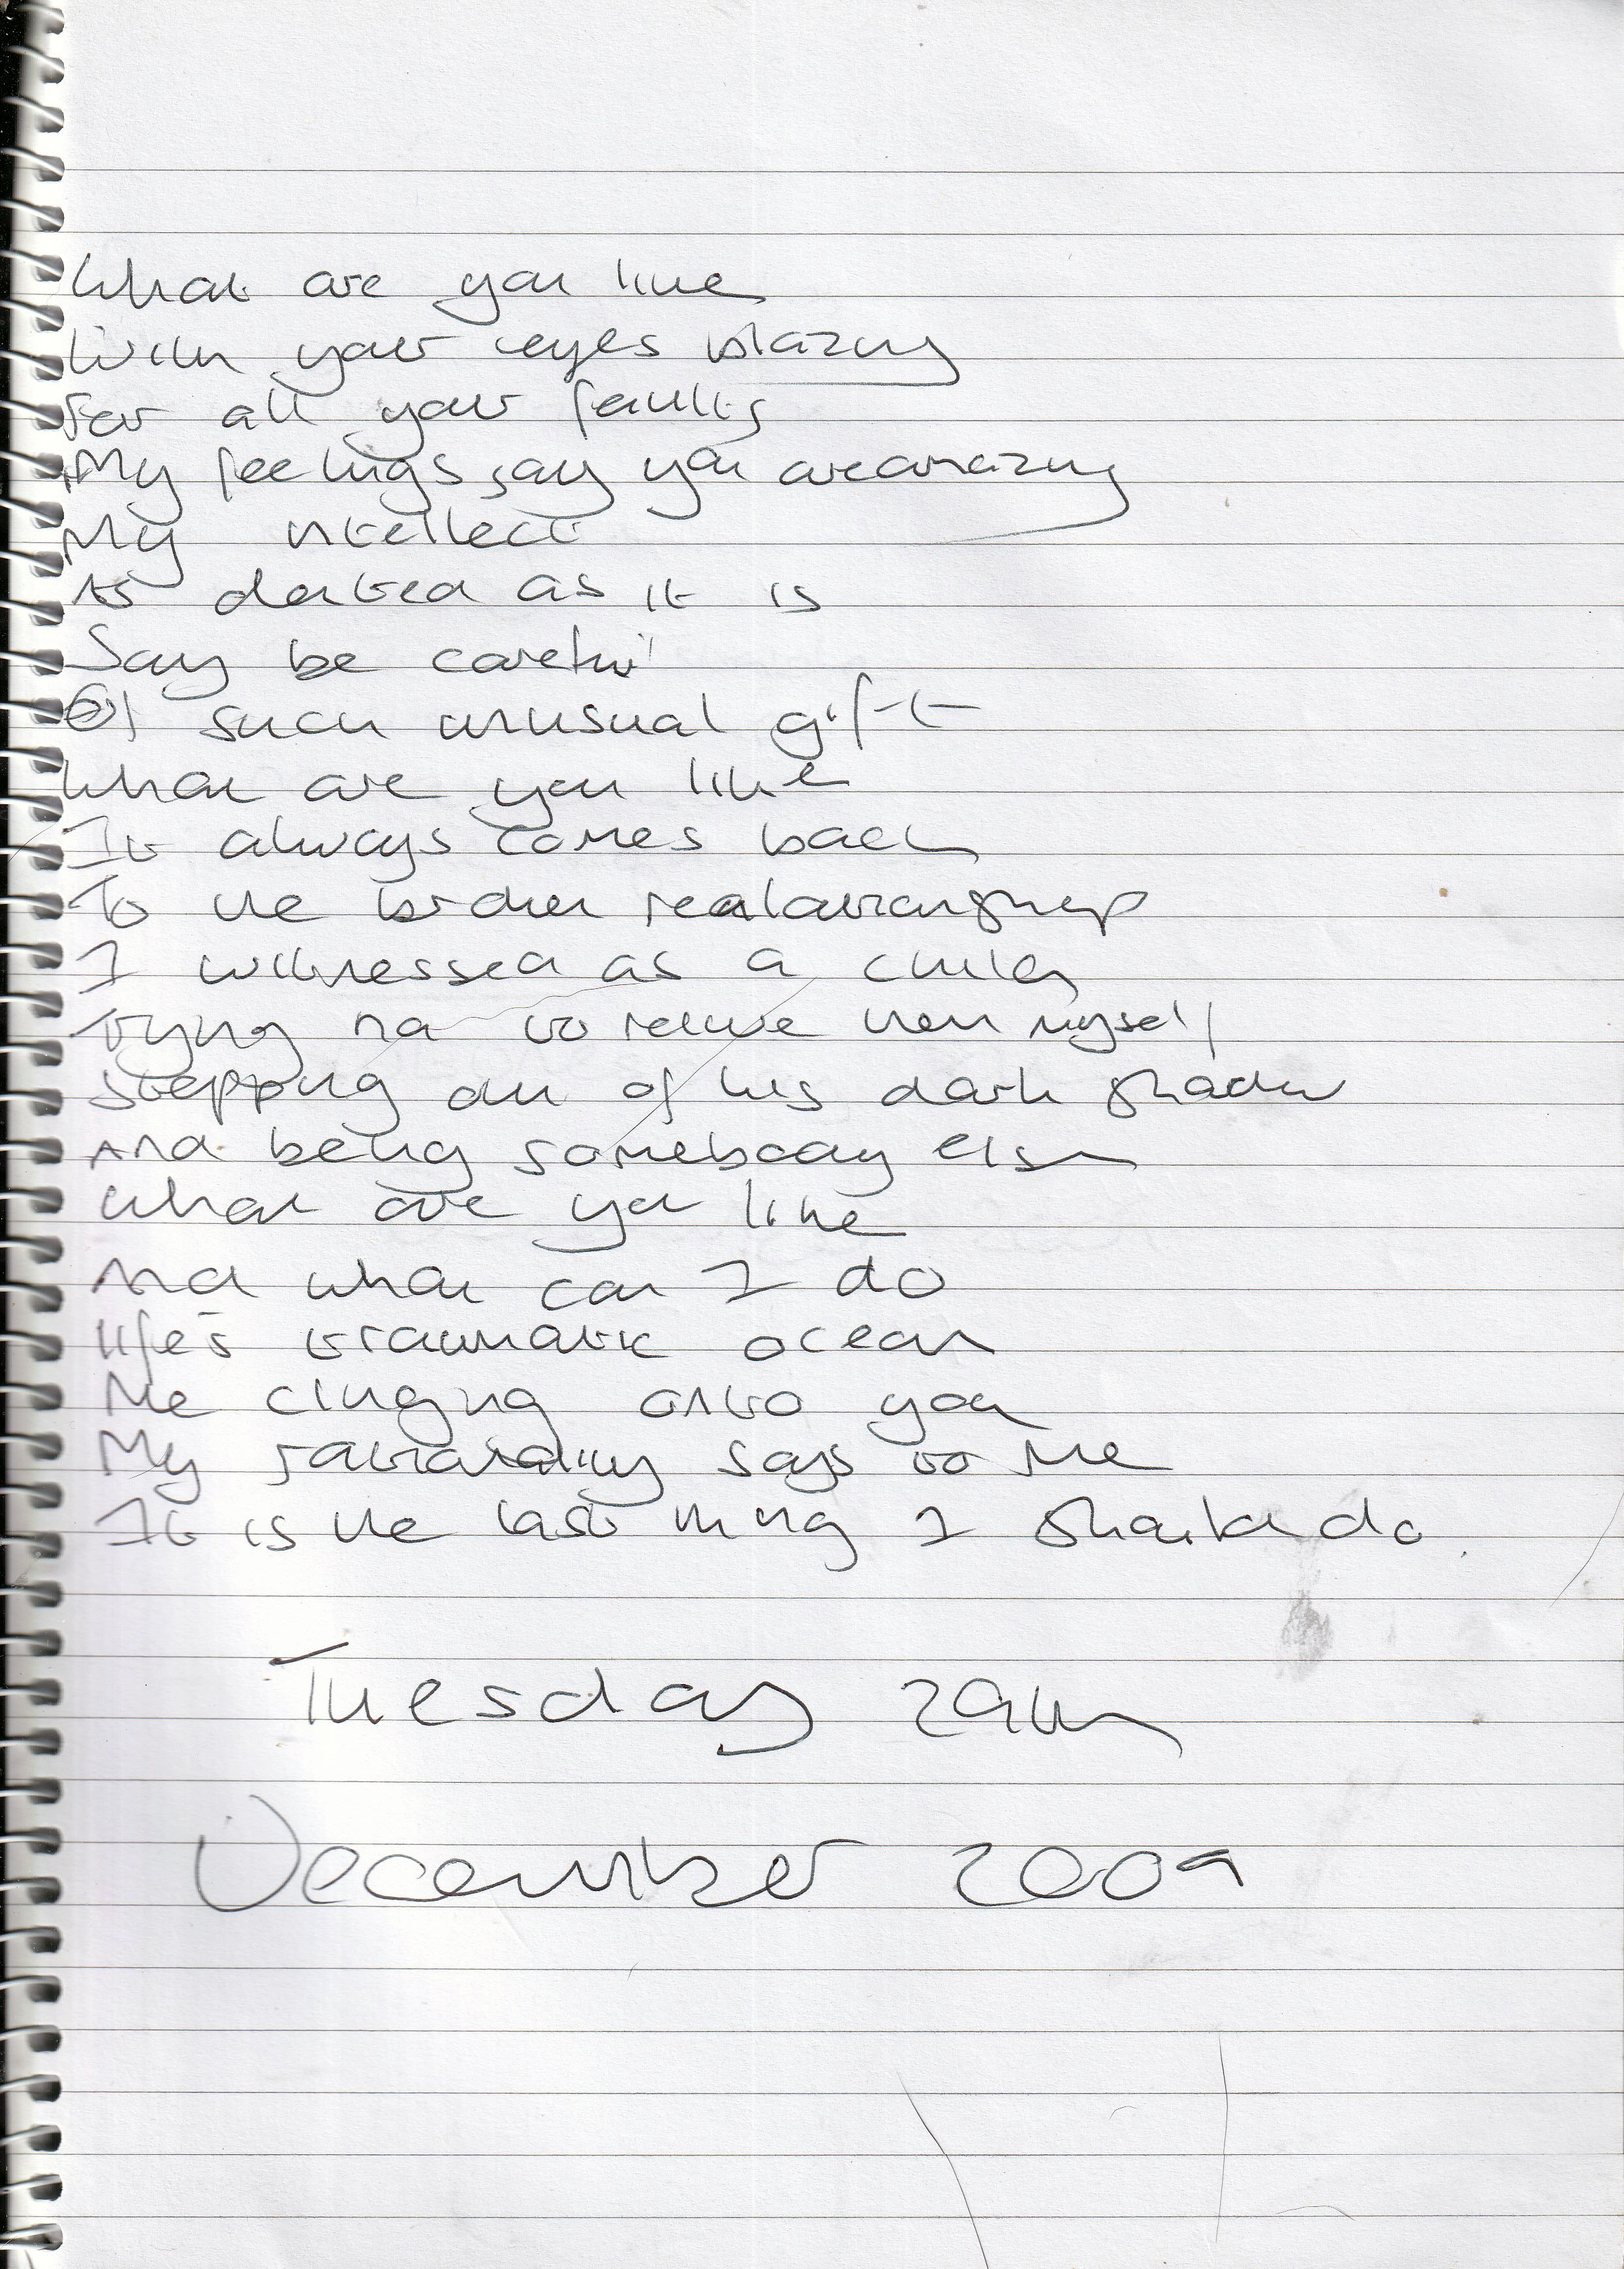 What are you like
With your eyes blazing
For all your faults
My feelings say you are amazing
My intellect
As dented as it is
Say be careful
Of such unusual gift
What are you like
It always comes back
To the broken realationship
I witnessed as a child
Trying not to relive them myself
Stepping out of his dark shadow
And being somebody else
What are you like
And what can I do
life's traumatic ocean
Me clinging onto you
My rationality says to me
It is the last thing I should do.
Tuesday 29th
December 2009